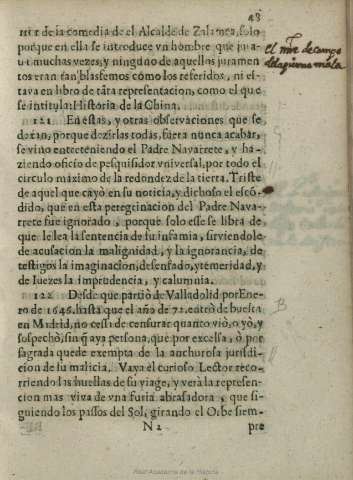 48
rrir de la comedia de el Alcalde de Zalamea, solo
porque en ella se introduce vn hombre que jura-
ua muchas vezes, y ninguno de aquellos juramen
tos eran tan blasfemos como los referidos, ni es-
taua en libro de tãta representacion, como el que
se intitula: Historia de la China.
121 En estas, y otras observaciones que se
dexan, porque dezirlas todas, fuera nunca acabar,
se vino entreteniendo el Padre Navarrete, y ha-
ziendo oficio de pesquisidor vniversal, por todo el
circulo maximo de la redondez de la tierra. Triste
de aquel que cayò en su noticia, y dichoso el escõ-
dido, que en esta peregrinacion del Padre Nava-
rrete fue ignorado, porque solo esse se libra de
que le lea la sentencia de su infamia, sirviendole
de acusacion la malignidad, y la ignorancia, de
testigos la imaginacion, desenfado, y temeridad, y
de Iuezes la imprudencia, y calumnia.
122 Desde que partiò de Valladolid por Ene-
ro de 1646. hasta que el año de 72. entrò de buelta
en Madrid, no cessò de censurar quanto viò, oyò, y
sospechò, sin q̃ aya persona, que por excelsa, ò por
sagrada quede exempta de la anchurosa jurisdi-
cion de su malicia. Vaya el curioso Lector reco-
rriendo las huellas de su viage, y verà la represen-
cion mas viva de vna furia abrasadora, que si-
guiendo los passos del Sol, girando el Orbe siem-
N 2 pre
el mre de campo
de la pierna mala
B
Real Academia de la Historia